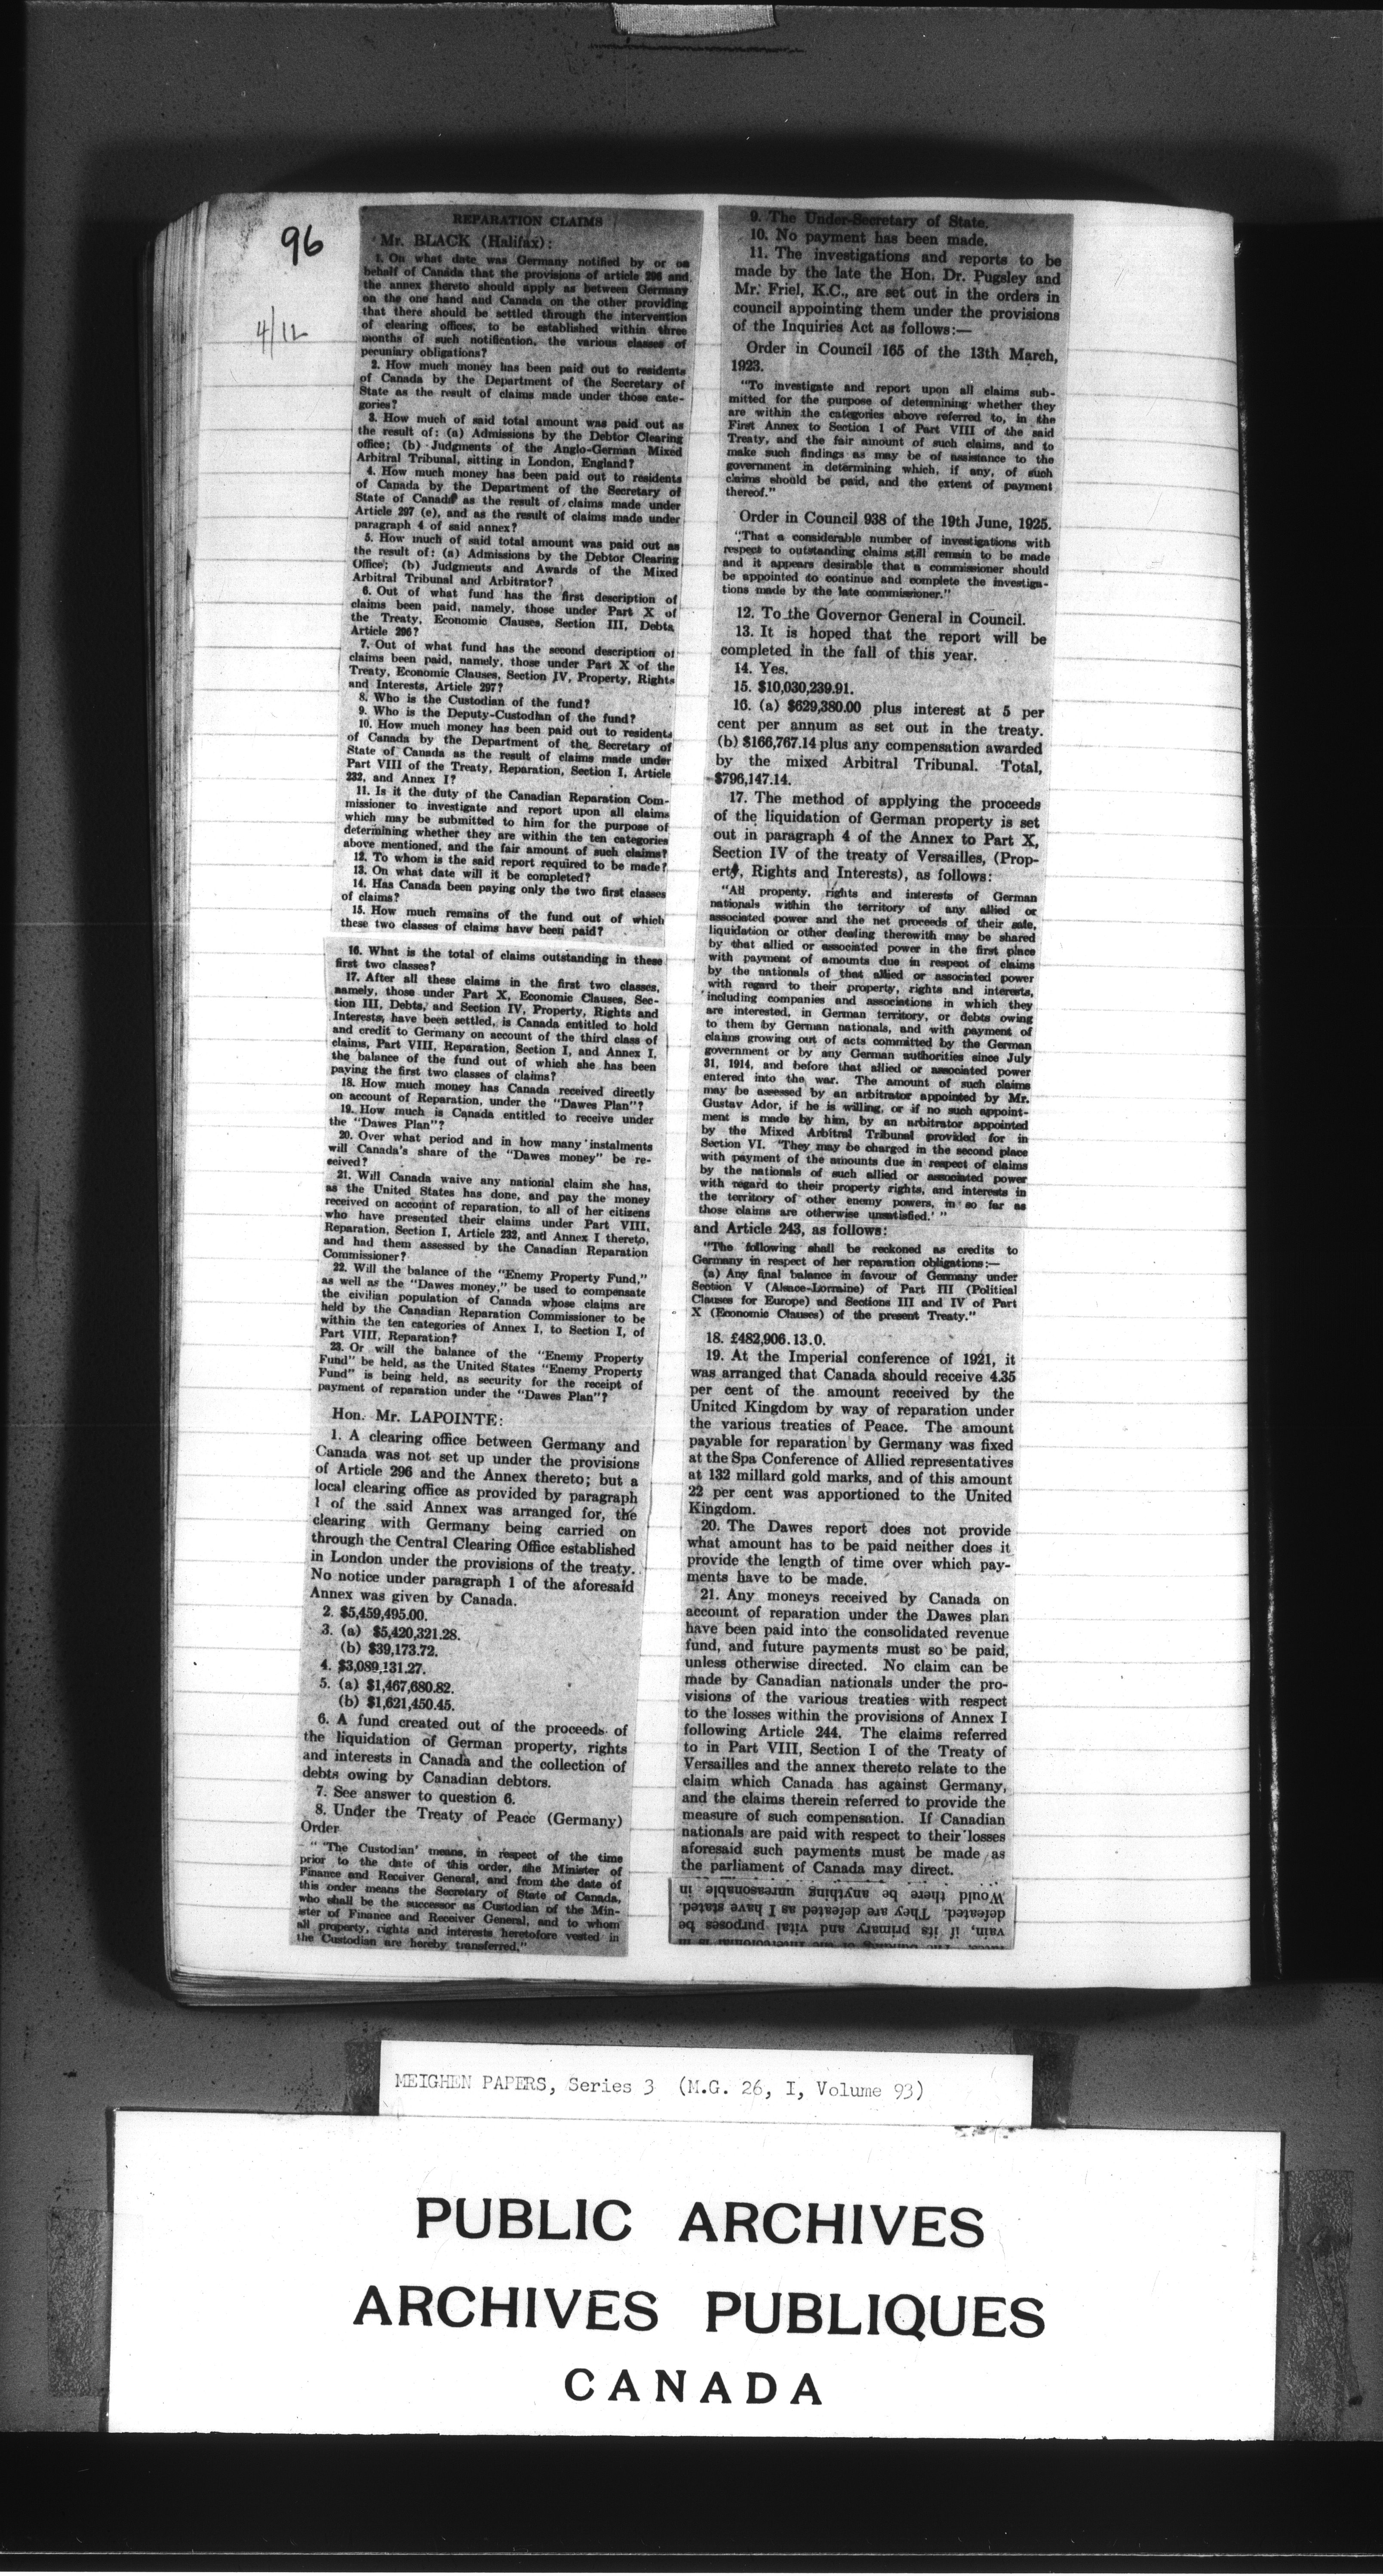 96
4/12
REPARATION CLAIMS
Mr. BLACK (Halifax):
1. On what date was Germany notified by or on
behalf of Canada that the provisions of article 296 and
the annex thereto should apply as between Germany
on the one hand and Canada on the other providing
that there should be settled through the intervention
of clearing offices, to be established within three
months of such notification, the various classes of
pecuniary obligations?
2. How much money has been paid out to residents
of Canada by the Department of the Secretary of
State as the result of claims made under those cate-
gories?
3. How much of said total amount was paid out as
the result of: (a) Admissions by the Debtor Clearing
office; (b) Judgments of the Anglo-German Mixed
Arbitral Tribunal, sitting in London, England?
4. How much money has been paid out to residents
of Canada by the Department of the Secretary of
State of Canada as the result of claims made under
Article 297 (e), and as the result of claims made under
paragraph 4 of said annex?
5. How much of said total amount was paid out as
the result of: (a) Admissions by the Debtor Clearing
Office; (b) Judgments and Awards of the Mixed
Arbitral Tribunal and Arbitrator?
6. Out of what fund has the first description of
claims been paid, namely, those under Part X of
the Treaty, Economic Clauses, Section III, Debts,
Article 296?
7. Out of what fund has the second description of
claims been paid, namely, those under Part X of the
Treaty, Economic Clauses, Section IV, Property, Rights
and Interests, Article 297?
8. Who is the Custodian of the fund?
9. Who is the Deputy-Custodian of the fund?
10. How much money has been paid out to residents
of Canada by the Department of the Secretary of
State of Canada as the result of claims made under
Part VIII of the Treaty, Reparation, Section I, Article
232, and Annex I?
11. Is it the duty of the Canadian Reparation Com-
missioner to investigate and report upon all claims
which may be submitted to him for the purpose of
determining whether they are within the ten categories
above mentioned, and the fair amount of such claims?
12. To whom is the said report required to be made?
13. On what date will it be completed?
14. Has Canada been paying only the two first classes
of claims?
15. How much remains of the fund out of which
these two classes of claims have been paid?
16. What is the total of claims outstanding in these
first two classes?
17. After all these claims in the first two classes,
namely, those under Part X, Economic Clauses, Sec-
tion III, Debts, and Section IV, Property, Rights and
Interests, have been settled, is Canada entitled to hold
and credit to Germany on account of the third class of
claims, Part VIII, Reparation, Section I, and Annex I,
the balance of the fund out of which she has been
paying the first two classes of claims?
18. How much money has Canada received directly
on account of Reparation, under the "Dawes Plan"?
19. How much is Canada entitled to receive under
the "Dawes Plan"?
20. Over what period and in how many instalments
will Canada's share of the "Dawes money" be re-
ceived?
21. Will Canada waive any national claim she has,
as the United States has done, and pay the money
received on account of reparation, to all of her citizens
who have presented their claims under Part VIII,
Reparation, Section I, Article 232, and Annex I thereto,
and had them assessed by the Canadian Reparation
Commissioner?
22. Will the balance of the "Enemy Property Fund,"
as well as the "Dawes money," be used to compensate
the civilian population of Canada whose claims are
held by the Canadian Reparation Commissioner to be
within the ten categories of Annex I, to Section I, of
Part VIII, Reparation?
23. Or will the balance of the "Enemy Property
Fund" be held, as the United States "Enemy Property
Fund" is being held, as security for the receipt of
payment of reparation under the "Dawes Plan"?
Hon. Mr. LAPOINTE:
1. A clearing office between Germany and
Canada was not set up under the provisions
of Article 296 and the Annex thereto; but a
local clearing office as provided by paragraph
1 of the said Annex was arranged for, the
clearing with Germany being carried on
through the Central Clearing Office established
in London under the provisions of the treaty.
No notice under paragraph 1 of the aforesaid
Annex was given by Canada.
2. $5,459,495.00.
3. (a) $5,420,321.28.
(b) $39,173.72.
4. $3,089,131.27.
5. (a) $1,467,680.82.
(b) $1,621,450.45.
6. A fund created out of the proceeds of
the liquidation of German property, rights
and interests in Canada and the collection of
debts owing by Canadian debtors.
7. See answer to question 6.
8. Under the Treaty of Peace (Germany)
Order
" 'The Custodian' means, in respect of the time
prior to the date of this order, the Minister of
Finance and Receiver General, and from the date of
this order means the Secretary of State of Canada,
who shall be the successor as Custodian of the Min-
ister of Finance and Receiver General, and to whom
all property, rights and interests heretofore vested in
the Custodian are hereby transferred."
9. The Under-Secretary of State.
10. No payment has been made.
11. The investigations and reports to be
made by the late the Hon. Dr. Pugsley and
Mr. Friel, K.C., are set out in the orders in
council appointing them under the provisions
of the Inquiries Act as follows:—
Order in Council 165 of the 13th March,
1923.
"To investigate and report upon all claims sub-
mitted for the purpose of determining whether they
are within the categories above referred to, in the
First Annex to Section 1 of Part VIII of the said
Treaty, and the fair amount of such claims, and to
make such findings as may be of assistance to the
government in determining which, if any, of such
claims should be paid, and the extent of payment
thereof."
Order in Council 938 of the 19th June, 1925.
"That a considerable number of investigations with
respect to outstanding claims still remain to be made
and it appears desirable that a commissioner should
be appointed to continue and complete the investiga-
tions made by the late commissioner."
12. To the Governor General in Council.
13. It is hoped that the report will be
completed in the fall of this year.
14. Yes.
15. $10,030,239.91.
16. (a) $629,380.00 plus interest at 5 per
cent per annum as set out in the treaty.
(b) $166,767.14 plus any compensation awarded
by the mixed Arbitral Tribunal. Total,
$796,147.14.
17. The method of applying the proceeds
of the liquidation of German property is set
out in paragraph 4 of the Annex to Part X,
Section IV of the treaty of Versailles, (Prop-
erty, Rights and Interests), as follows:
"All property, rights and interests of German
nationals within the territory of any allied or
associated power and the net proceeds of their sale,
liquidation or other dealing therewith may be shared
by that allied or associated power in the first place
with payment of amounts due in respect of claims
by the nationals of that allied or associated power
with regard to their property, rights and interests,
including companies and associations in which they
are interested, in German territory, or debts owing
to them by German nationals, and with payment of
claims growing out of acts committed by the German
government or by any German authorities since July
31, 1914, and before that allied or associated power
entered into the war. The amount of such claims
may be assessed by an arbitrator appointed by Mr.
Gustav Ador, if he is willing, or if no such appoint-
ment is made by him, by an arbitrator appointed
by the Mixed Arbitral Tribunal provided for in
Section VI. 'They may be charged in the second place
with payment of the amounts due in respect of claims
by the nationals of such allied or associated power
with regard to their property rights, and interests in
the territory of other enemy powers, in so far as
those claims are otherwise unsatisfied.' "
and Article 243, as follows:
"The following shall be reckoned as credits to
Germany in respect of her reparation obligations:—
(a) Any final balance in favour of Germany under
Section V (Alsace-Lorraine) of Part III (Political
Clauses for Europe) and Sections III and IV of Part
X (Economic Clauses) of the present Treaty."
18. £482,906.13.0.
19. At the Imperial conference of 1921, it
was arranged that Canada should receive 4.35
per cent of the amount received by the
United Kingdom by way of reparation under
the various treaties of Peace. The amount
payable for reparation by Germany was fixed
at the Spa Conference of Allied representatives
at 132 millard gold marks, and of this amount
22 per cent was apportioned to the United
Kingdom.
20. The Dawes report does not provide
what amount has to be paid neither does it
provide the length of time over which pay-
ments have to be made.
21. Any moneys received by Canada on
account of reparation under the Dawes plan
have been paid into the consolidated revenue
fund, and future payments must so be paid,
unless otherwise directed. No claim can be
made by Canadian nationals under the pro-
visions of the various treaties with respect
to the losses within the provisions of Annex I
following Article 244. The claims referred
to in Part VIII, Section I of the Treaty of
Versailles and the annex thereto relate to the
claim which Canada has against Germany,
and the claims therein referred to provide the
measure of such compensation. If Canadian
nationals are paid with respect to their losses
aforesaid such payments must be made as
the parliament of Canada may direct.
vain, if its primary and vital purposes be
defeated. They are defeated as I have stated.
Would there be anything unreasonable in
MEIGHEN PAPERS, Series 3 (M.G. 26, I, Volume 93)
PUBLIC ARCHIVES
ARCHIVES PUBLIQUES
CANADA